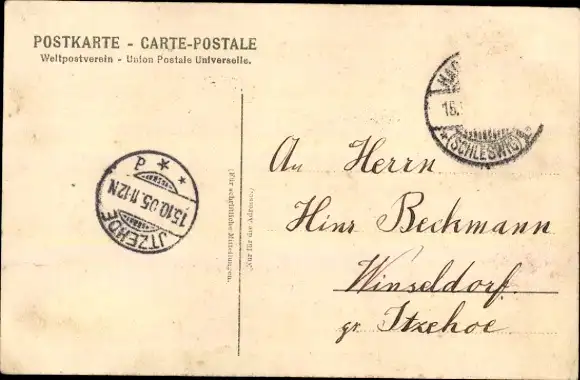 POSTKARTE - CARTE-POSTALE
Weltpostverein - Union Postale Universelle.
15.
* (SCHLESWIG) *
d * *
15.10.05. 11-12N
ITZEHOE
(Für schriftliche Mitteilungen.
(Nur für die Adresse.)
An Herrn
Hinr Beckmann
Winseldorf.
gr. Itzehoe